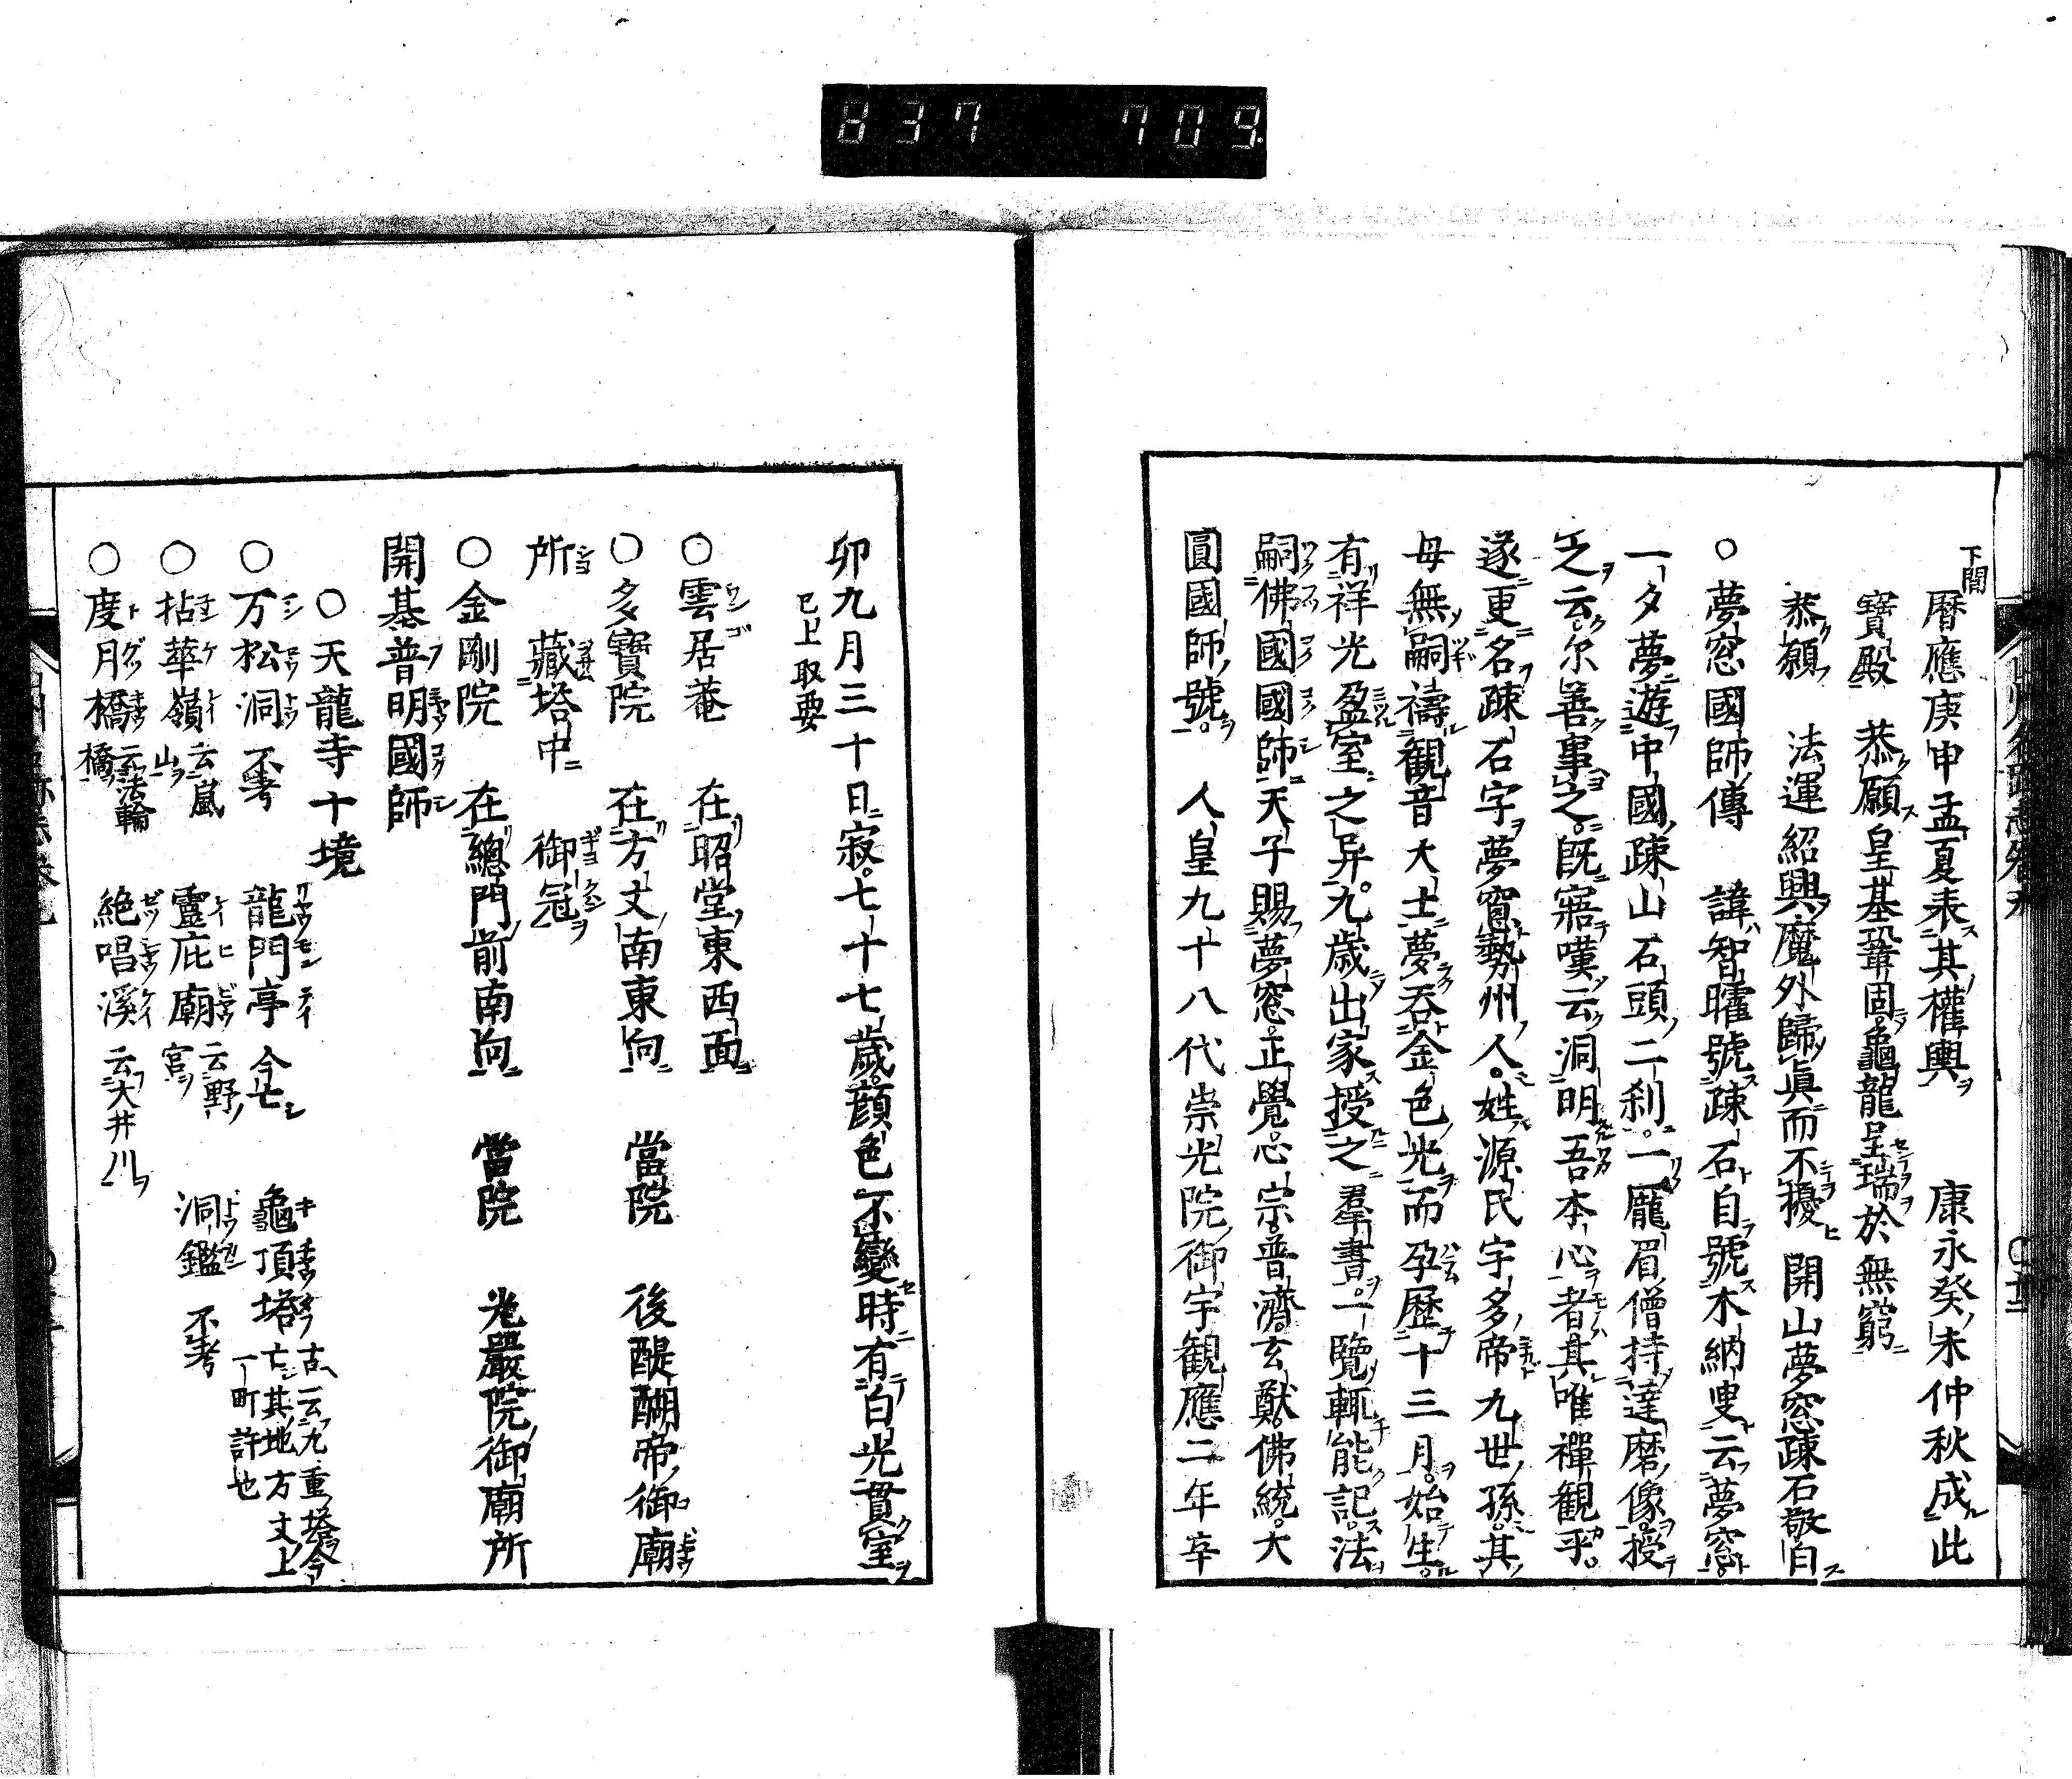 837 709
下間
暦應庚申孟夏表其權輿 康永癸未仲秋成此
寶殿 恭願皇基鞏固龜龍呈瑞於無窮
恭願 法運紹興魔外歸眞而不擾 開山夢窓疎石敬白
○夢窓國師傳 諱智曤號疎石自號木納叟云夢窓
一夕夢遊中國疎山石頭二刹一龐眉僧持達磨像授
之云尓善事之既寤嘆云洞明吾本心者其唯禪観乎
遂更名疎石字夢窓勢州人姓源氏宇多帝九世孫其
母無嗣禱観音大士夢呑金色光而孕歴十三月始生
有祥光盈室之异九歳出家授之羣書一覽輒能記法
嗣佛國國師天子賜夢窓正覺心宗普濟玄猷佛統大
圓國師號 人皇九十八代崇光院御宇観應二年辛
卯九月三十日寂七十七歳顔色不變時有白光貫室
已上取要
○雲居菴 在昭堂東西面
○多寶院 在方丈南東向 當院 後醍醐帝御廟
所 藏塔中 御冠
○金剛院 在總門前南向 當院 光嚴院御廟所
開基普明國師
○天龍寺十境
○万松洞 不考 龍門亭 今亡 龜頂塔 古云九重塔今亡其地方丈上一町許也
○拈華嶺 云嵐山 靈庇廟 云野宮 洞鑑 不考
○度月橋 云法輪橋 絶唱溪 云大井川